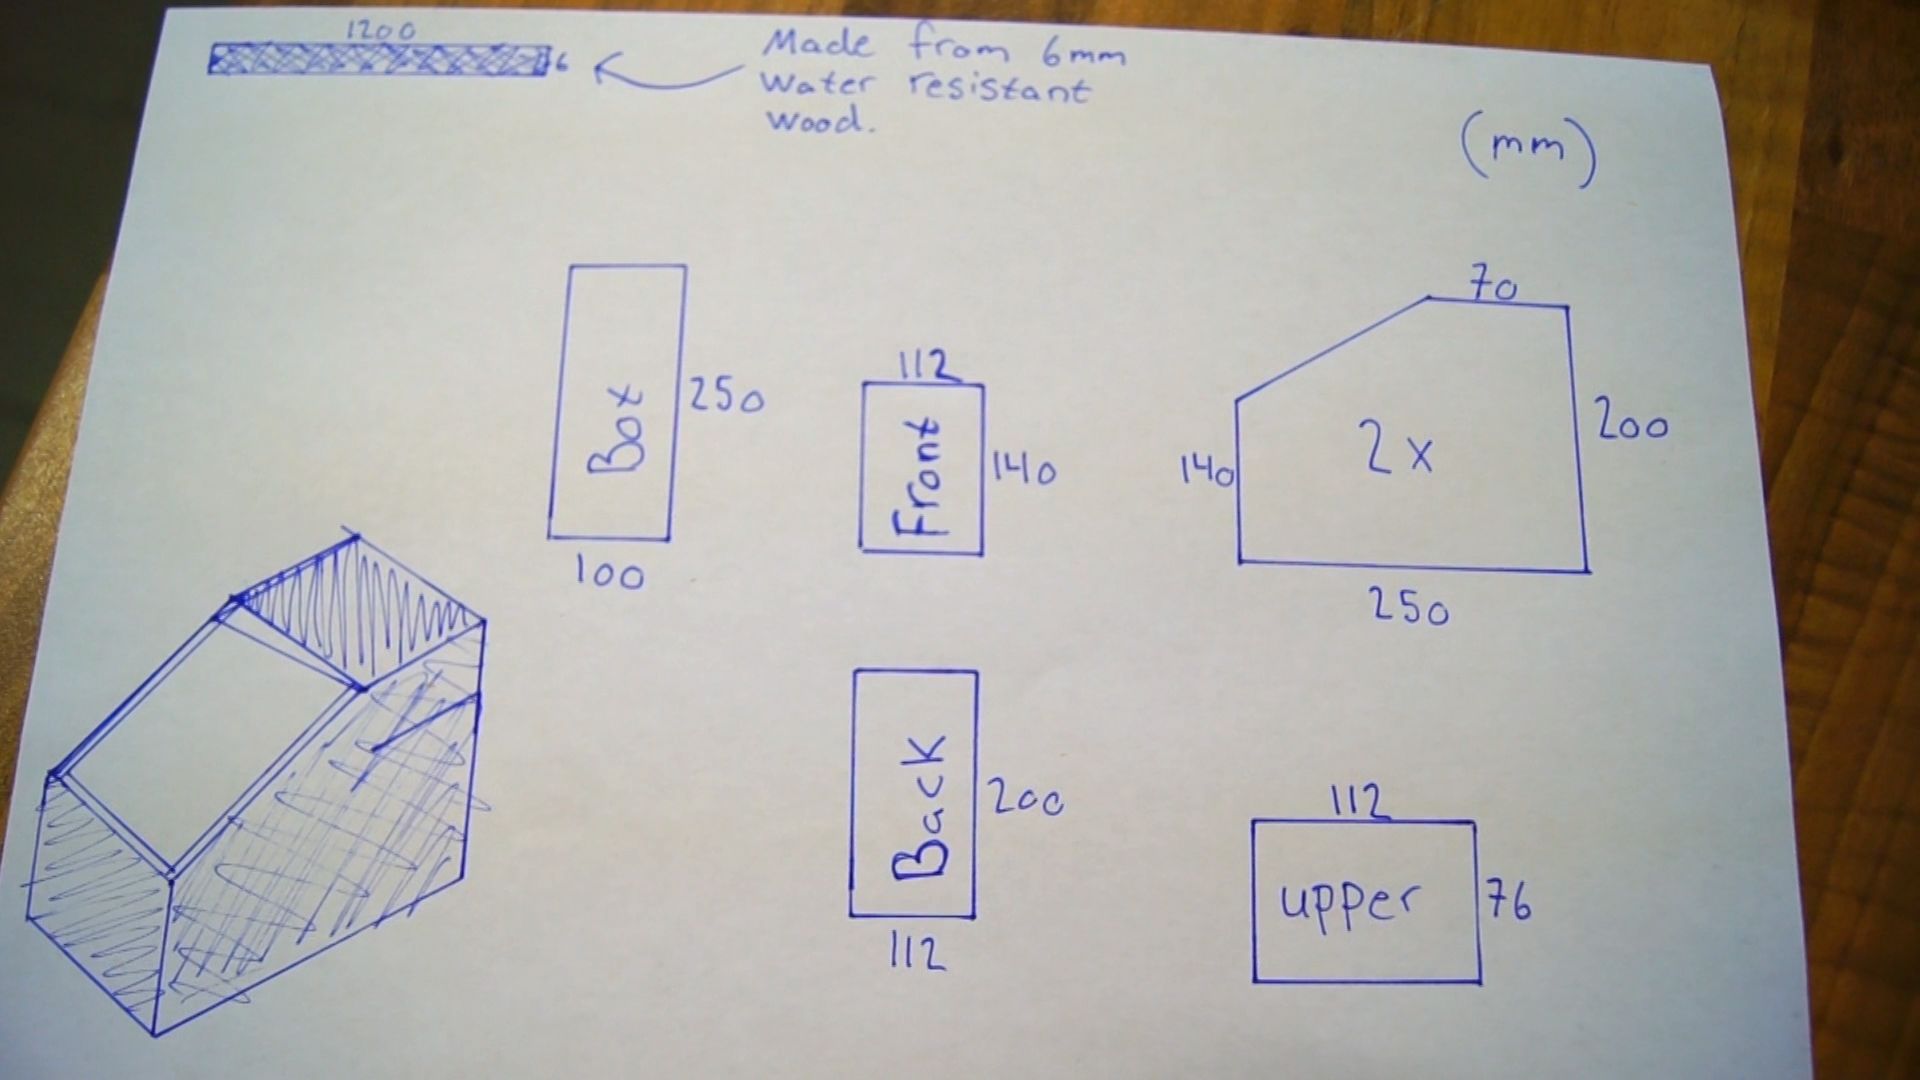 1200
6
Made from 6mm
Water resistant
wood.
(mm)
Bot
250
100
112
Front
140
70
140
2x
200
250
Back
200
112
112
upper
76